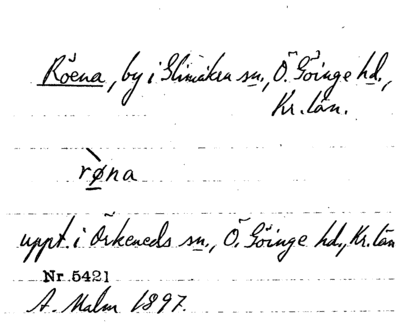 Röena, by i Glimåkra sn., Ö. Göinge hd.,
Kr. län.
rø̀na
uppt. i Örkeneds sn., Ö. Göinge hd., Kr. län
Nr. 5421
A. Malm 1897.